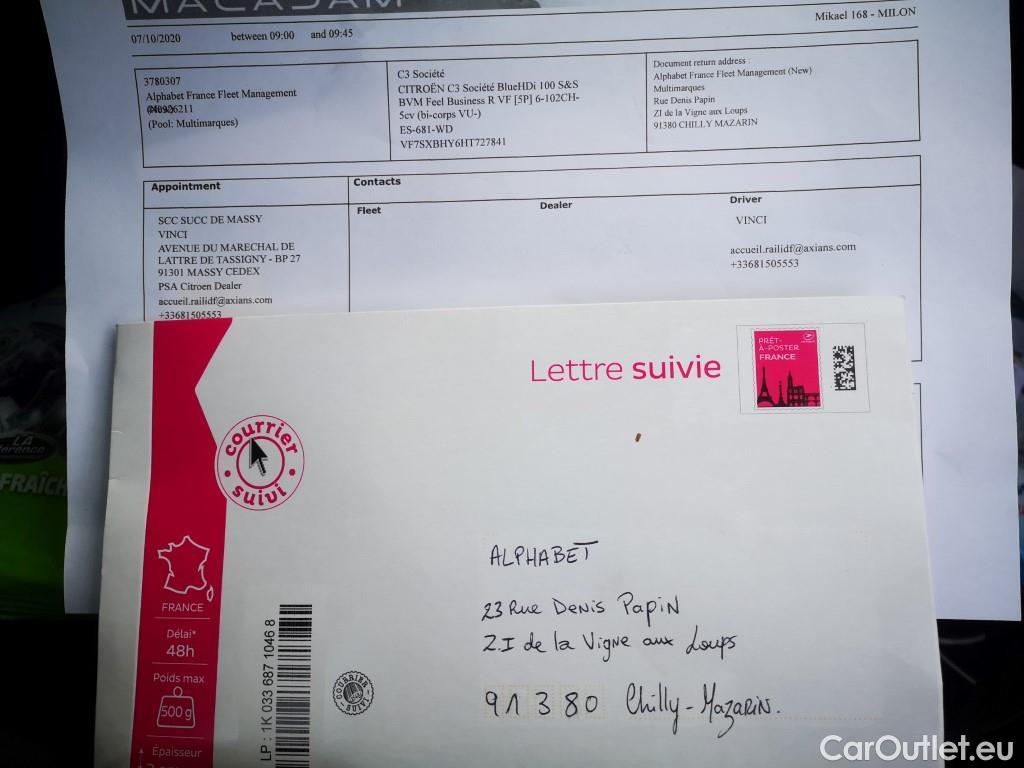 MACADAM
Mikael 168 - MILON
07/10/2020 between 09:00 and 09:45
3780307
Alphabet France Fleet Management
(Pool: Multimarques)
C3 Société
CITROËN C3 Société BlueHDi 100 S&S
BVM Feel Business R VF [5P] 6-102CH-
5cv (bi-corps VU-)
ES-681-WD
VF7SXBHY6HT727841
Document return address :
Alphabet France Fleet Management (New)
Multimarques
Rue Denis Papin
ZI de la Vigne aux Loups
91380 CHILLY MAZARIN
Appointment
Contacts
Fleet
Dealer
Driver
SCC SUCC DE MASSY
VINCI
AVENUE DU MARECHAL DE
LATTRE DE TASSIGNY - BP 27
91301 MASSY CEDEX
PSA Citroen Dealer
accueil.railidf@axians.com
+33681505553
VINCI
accueil.railidf@axians.com
+33681505553
Lettre suivie
PRÊT-
À-POSTER
FRANCE
courrier
suivi
FRANCE
Délai*
48h
Poids max
500g
Épaisseur
LP : 1K 033 687 1046 8
COURRIER
SUIVI
ALPHABET
23 Rue Denis Papin
Z.I de la Vigne aux Loups
91380 Chilly-Mazarin.
LA
FRAÎCH
CarOutlet.eu